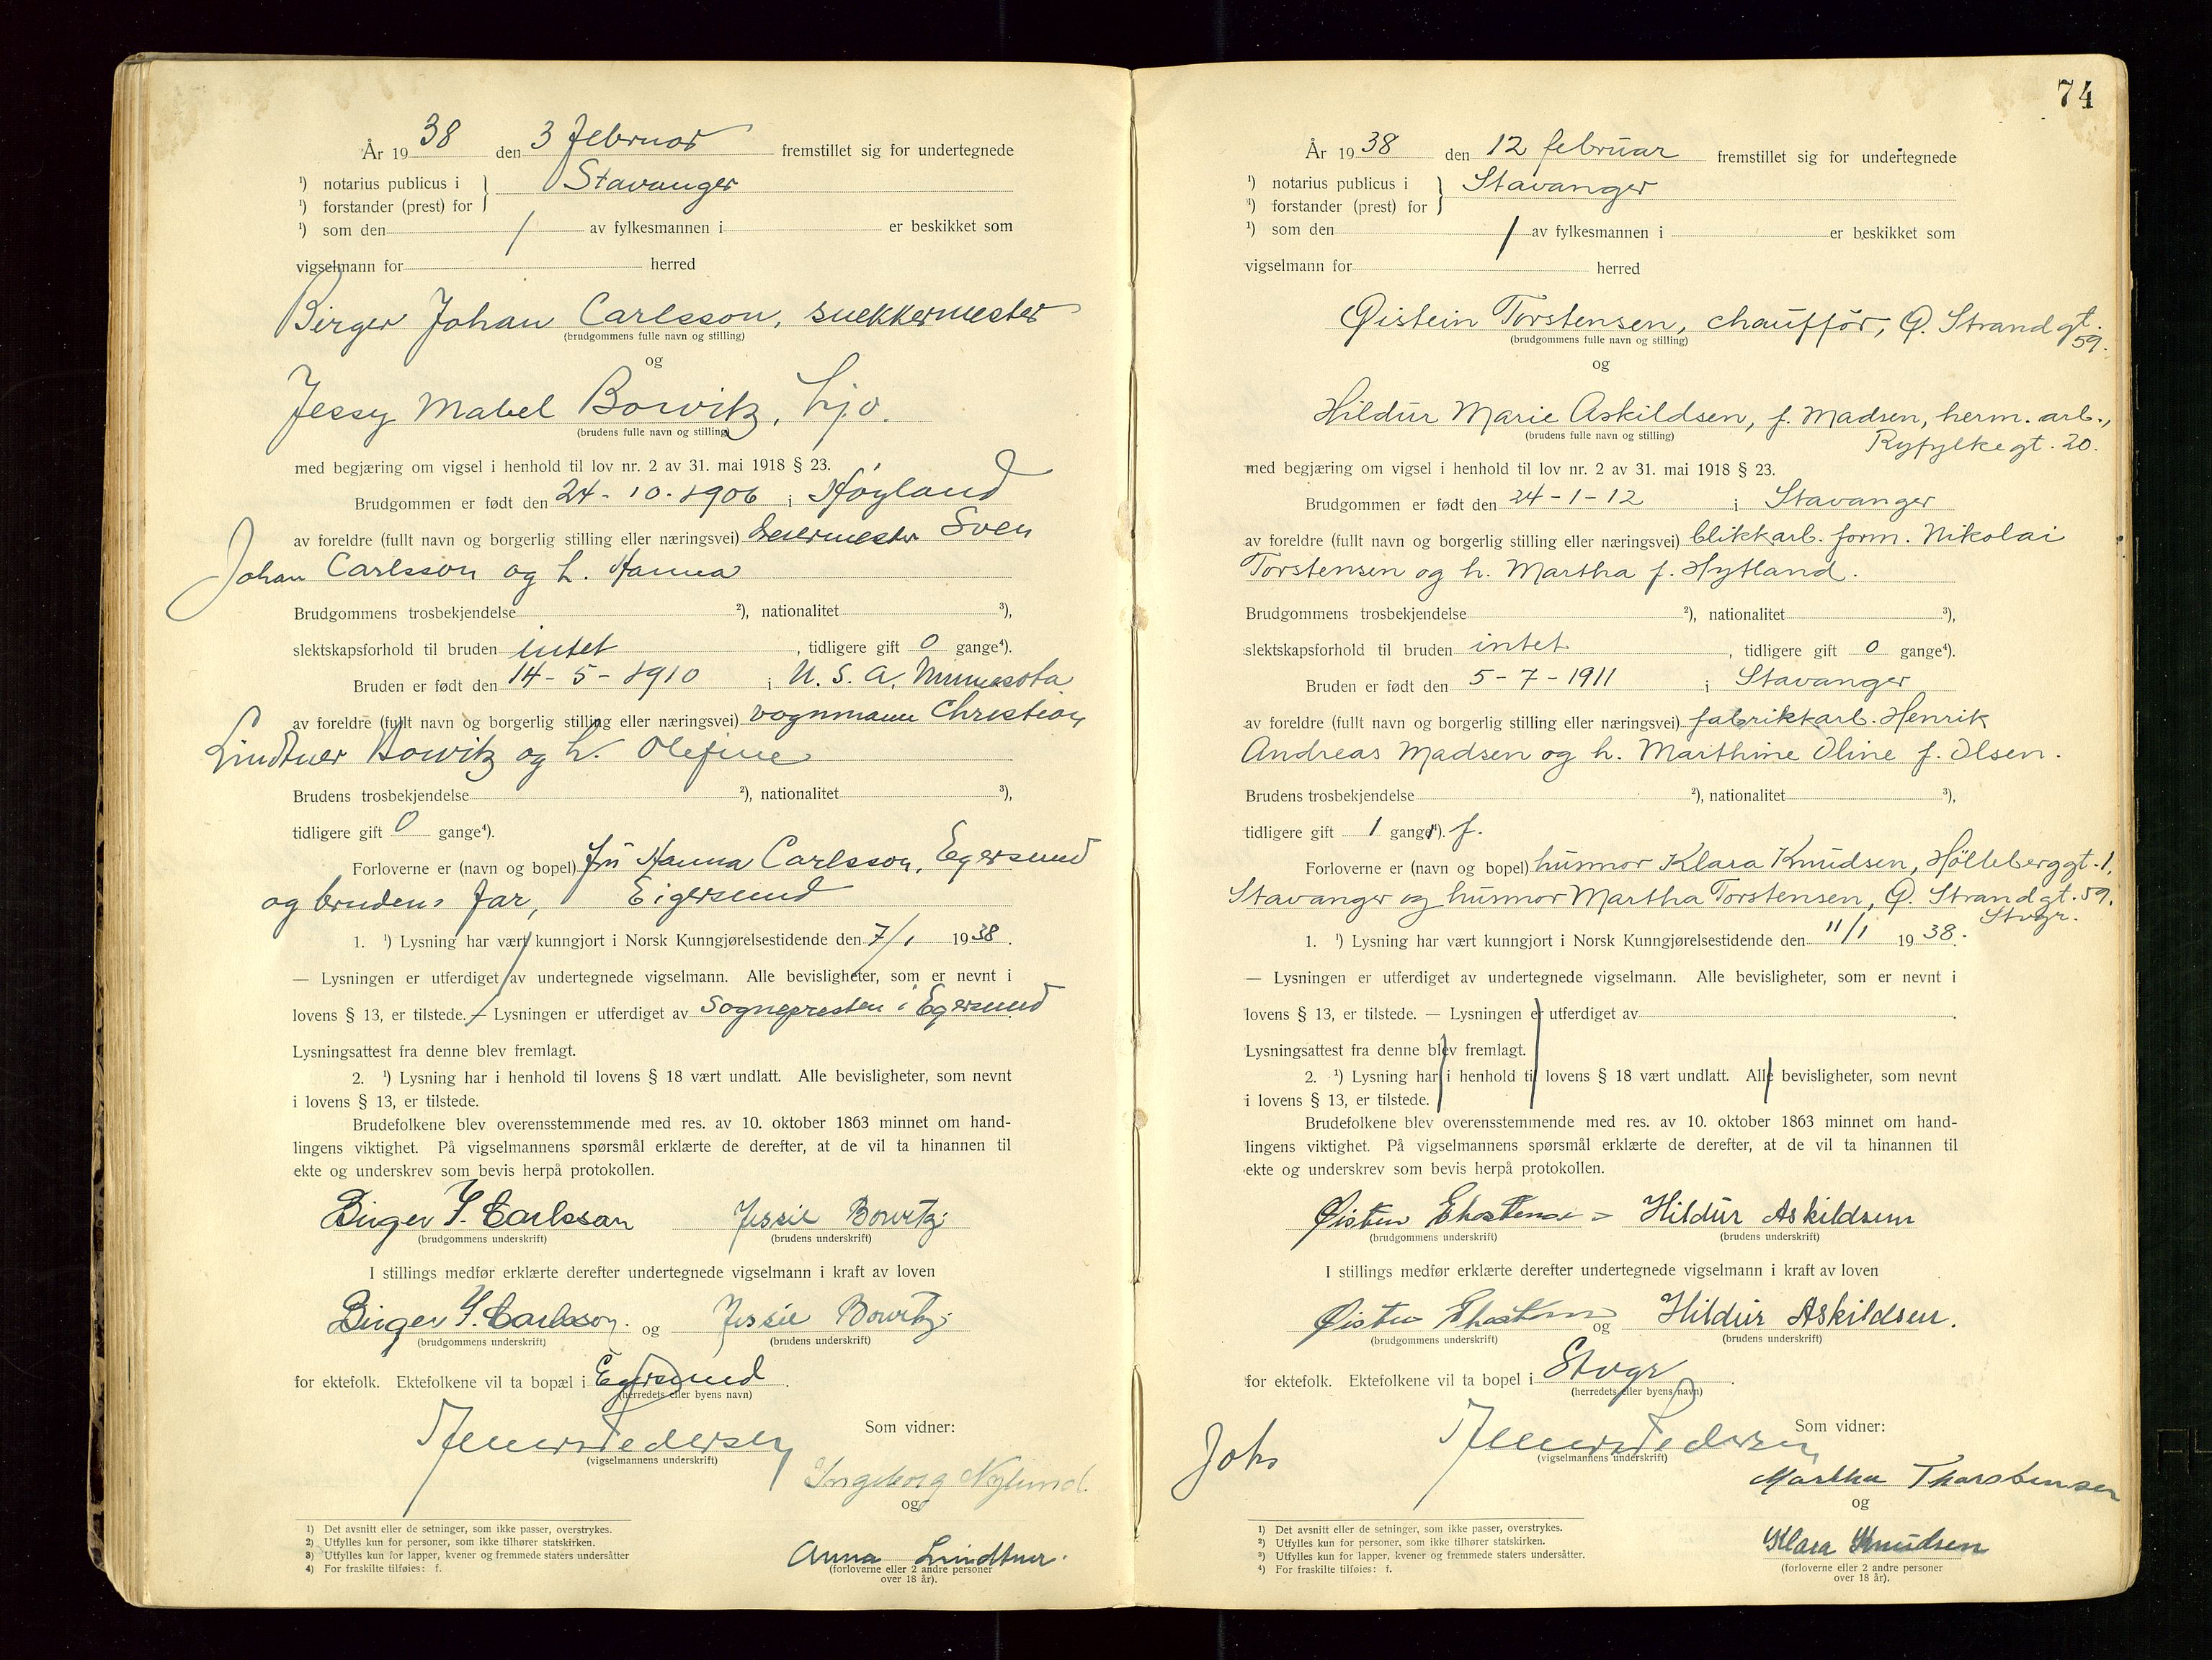 År 1938 den 3 februar fremstillet sig for undertegnede
¹) notarius publicus i } Stavanger
¹) forstander (prest) for
¹) som den / av fylkesmannen i er beskikket som
vigselmann for herred
Birger Johan Carlsson, snekkermester
(brudgommens fulle navn og stilling)
og
Jessy Mabel Bowitz, hj.
(brudens fulle navn og stilling)
med begjæring om vigsel i henhold til lov nr. 2 av 31. mai 1918 § 23.
Brudgommen er født den 24-10-1906 i Høyland
av foreldre (fullt navn og borgerlig stilling eller næringsvei) Sven
Johan Carlsson og h. Hanna
Brudgommens trosbekjendelse ²), nationalitet ³),
slektskapsforhold til bruden intet, tidligere gift 0 gange⁴).
Bruden er født den 14-5-1910 i U.S.A. Minnesota
av foreldre (fullt navn og borgerlig stilling eller næringsvei) vognmann Christian
Lindtner Bowitz og h. Olefine
Brudens trosbekjendelse ²), nationalitet ³),
tidligere gift 0 gange⁴).
Forloverne er (navn og bopel) fru Hanna Carlsson, Egersund
og brudens far, Eigersund
1. ¹) Lysning har vært kunngjort i Norsk Kunngjørelsestidende den 7/1 1938.
— Lysningen er utferdiget av undertegnede vigselmann. Alle bevisligheter, som er nevnt i
lovens § 13, er tilstede. — Lysningen er utferdiget av Sognepresten i Egersund
Lysningsattest fra denne blev fremlagt.
2. ¹) Lysning har i henhold til lovens § 18 vært undlatt. Alle bevisligheter, som nevnt
i lovens § 13, er tilstede.
Brudefolkene blev overensstemmende med res. av 10. oktober 1863 minnet om hand-
lingens viktighet. På vigselmannens spørsmål erklærte de derefter, at de vil ta hinannen til
ekte og underskrev som bevis herpå protokollen.
Birger J. Carlsson Jessie Bowitz
(brudgommens underskrift) (brudens underskrift)
I stillings medfør erklærte derefter undertegnede vigselmann i kraft av loven
Birger J. Carlsson og Jessie Bowitz
(brudgommens underskrift) (brudens underskrift)
for ektefolk. Ektefolkene vil ta bopæl i Egersund.
(herredets eller byens navn)
Som vidner:
Pedersen
(vigselmannens underskrift)
Ingeborg Nylund.
og
Anna Lindtner.
(forloverne eller 2 andre personer
over 18 år).
1) Det avsnitt eller de setninger, som ikke passer, overstrykes.
2) Utfylles kun for personer, som ikke tilhører statskirken.
3) Utfylles kun for lapper, kvener og fremmede staters undersåtter
4) For fraskilte tilføies: f.
74
År 1938 den 12 februar fremstillet sig for undertegnede
¹) notarius publicus i } Stavanger
¹) forstander (prest) for
¹) som den / av fylkesmannen i er beskikket som
vigselmann for herred
Øistein Torstensen, chauffør, Ø. Strandgt.
59.
(brudgommens fulle navn og stilling)
og
Hildur Marie Askildsen, f. Madsen, herm. arb.,
(brudens fulle navn og stilling)
Ryfylkegt. 20.
med begjæring om vigsel i henhold til lov nr. 2 av 31. mai 1918 § 23.
Brudgommen er født den 24-1-12 i Stavanger
av foreldre (fullt navn og borgerlig stilling eller næringsvei) blikkarb. form. Nikolai
Torstensen og h. Martha f. Hytland.
Brudgommens trosbekjendelse ²), nationalitet ³),
slektskapsforhold til bruden intet, tidligere gift 0 gange⁴).
Bruden er født den 5-7-1911 i Stavanger
av foreldre (fullt navn og borgerlig stilling eller næringsvei) fabrikkarb. Henrik
Andreas Madsen og h. Marthine Oline f. Olsen.
Brudens trosbekjendelse ²), nationalitet ³),
tidligere gift 1 gange⁴). f.
Forloverne er (navn og bopel) husmor Klara Knudsen, Hølleberggt. 1,
Stavanger og husmor Martha Torstensen, Ø. Strandgt. 59.
Stvgr.
1. ¹) Lysning har vært kunngjort i Norsk Kunngjørelsestidende den 11/1 1938.
— Lysningen er utferdiget av undertegnede vigselmann. Alle bevisligheter, som er nevnt i
lovens § 13, er tilstede. — Lysningen er utferdiget av .
Lysningsattest fra denne blev fremlagt.
2. ¹) Lysning har i henhold til lovens § 18 vært undlatt. Alle bevisligheter, som nevnt
i lovens § 13, er tilstede.
Brudefolkene blev overensstemmende med res. av 10. oktober 1863 minnet om hand-
lingens viktighet. På vigselmannens spørsmål erklærte de derefter, at de vil ta hinannen til
ekte og underskrev som bevis herpå protokollen.
Øisten Hildur Askildsen
(brudgommens underskrift) (brudens underskrift)
I stillings medfør erklærte derefter undertegnede vigselmann i kraft av loven
Øisten og Hildur Askildsen.
(brudgommens underskrift) (brudens underskrift)
for ektefolk. Ektefolkene vil ta bopel i Stvgr.
(herredets eller byens navn)
Som vidner:
Joh Pedersen
(vigselmannens underskrift)
Martha Thorstensen
og
Klara Knudsen
(forloverne eller 2 andre personer
over 18 år).
1) Det avsnitt eller de setninger, som ikke passer, overstrykes.
²) Utfylles kun for personer, som ikke tilhører statskirken.
³) Utfylles kun for lapper, kvener og fremmede staters undersåtter.
⁴) For fraskilte tilføies: f.